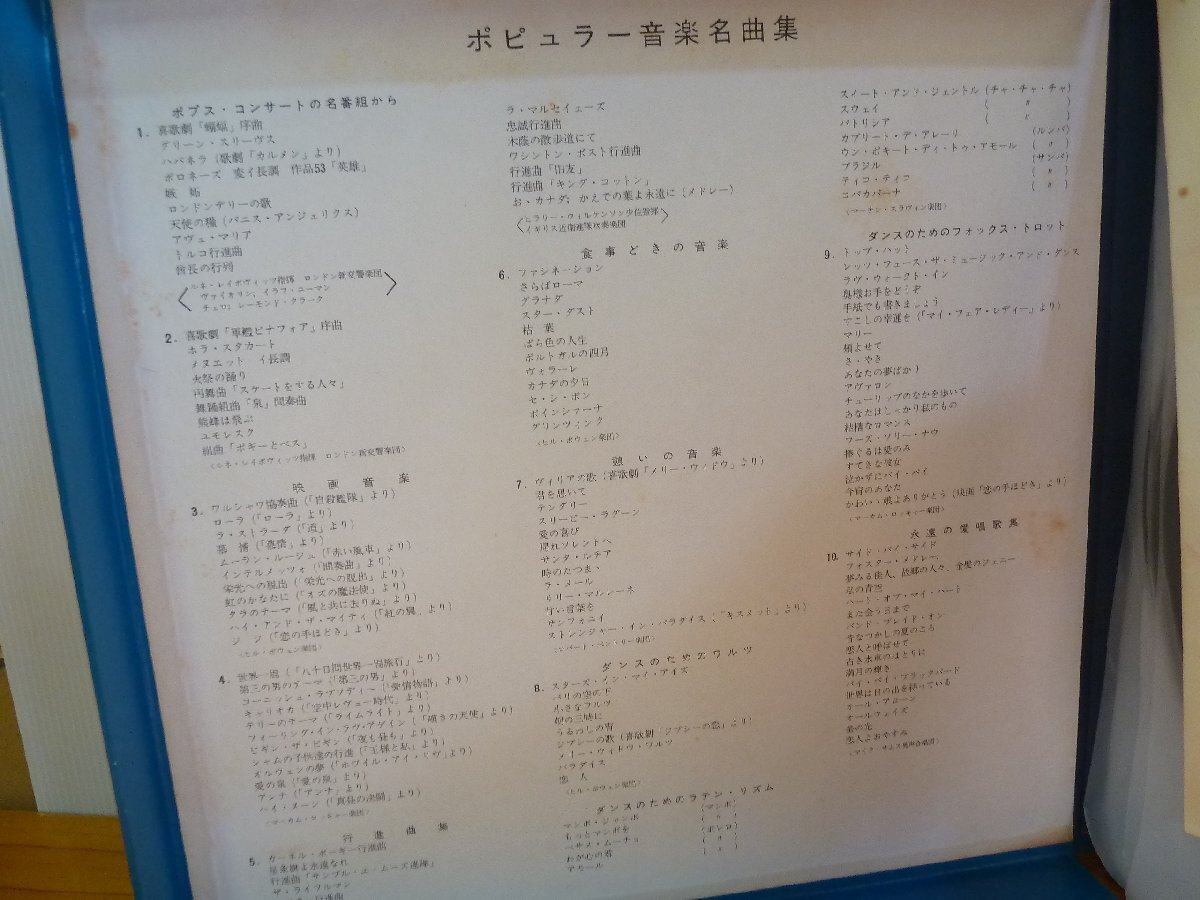 ポピュラー音楽名曲集
ポプス・コンサートの名番組から
1. 喜歌劇「蝙蝠」序曲
グリーン・スリーヴス
ハバネラ(歌劇「カルメン」より)
ポロネーズ 変イ長調 作品53「英雄」
嫉妬
ロンドンデリーの歌
天使の糧(パニス・アンジェリクス)
アヴェ・マリア
トルコ行進曲
酋長の行列
ルネ・レイボヴィッツ指揮 ロンドン新交響楽団
ヴァイオリン:イラフ・ニーマン
チェロ:レーモンド・クラーク
2. 喜歌劇「軍艦ピナフォア」序曲
ホラ・スタカート
メヌエット イ長調
火祭の踊り
円舞曲「スケートをする人々」
舞踊組曲「泉」間奏曲
熊蜂は飛ぶ
ユモレスク
組曲「ポギーとベス」
〈ルネ・レイボヴィッツ指揮 ロンドン新交響楽団〉
映画音楽
3. ワルシャワ協奏曲(「自殺艦隊」より)
ローラ(「ローラ」より)
ラ・ストラーダ(「道」より)
慕情(「慕情」より)
ムーラン・ルージュ(「赤い風車」より)
インテルメッツォ(「間奏曲」より)
栄光への脱出(「栄光への脱出」より)
虹のかなたに(「オズの魔法使」より)
タラのテーマ(「風と共に去りぬ」より)
ハイ・アンド・ザ・マイティ(「紅の翼」より)
ジジ(「恋の手ほどき」より)
〈ヒル・ボウエン楽団〉
4. 世界一周(「八十日間世界一周旅行」より)
第三の男のテーマ(「第三の男」より)
コーニッシュ・ラプソディー(「愛情物語」より)
キャリオカ(「空中レヴュー時代」より)
テリーのテーマ(「ライムライト」より)
フォーリング・イン・ラヴ・アゲイン(「嘆きの天使」より)
ビギン・ザ・ビギン(「夜も昼も」より)
シャムの子供達の行進(「王様と私」より)
オルウェンの夢(「ホワイル・アイ・リヴ」より)
愛の泉(「愛の泉」より)
アンナ(「アンナ」より)
ハイ・ヌーン(「真昼の決闘」より)
行進曲集
5. カーネル・ボーギー行進曲
星条旗よ永遠なれ
ザ・ライフルマン
ラ・マルセイェーズ
忠誠行進曲
木蔭の散歩道にて
ワシントン・ポスト行進曲
行進曲「旧友」
行進曲「キング・コットン」
お、カナダ;かえでの葉よ永遠に(メドレー)
ヒラリー・ウィルケンソン少佐指揮
イギリス近衛連隊吹奏楽団
食事どきの音楽
6. ファシネーション
さらばローマ
グラナダ
スター・ダスト
枯葉
ばら色の人生
ポルトガルの四月
ヴォラーレ
カナダの夕日
セ・シ・ボン
ポインシアーナ
グリンツィング
〈ヒル・ボウェン楽団〉
憩いの音楽
7. ヴィリアの歌(喜歌劇「メリー・ウィドウ」より)
君を思いて
テンダリー
スリーピー・ラグーン
愛の喜び
帰れソレントへ
サンタ・ルチア
時のたつまゝ
ラ・メール
リリー・マルレーネ
甘い言葉を
サンフォニイ
ストレンジャー・イン・パラダイス(「キスメット」より)
ダンスのためのワルツ
8. スターズ・イン・マイ・アイズ
パリの空の下
小さなワルツ
朝の三時に
うるわしの宵
ジプシーの歌(喜歌劇「ジプシーの恋」より)
メリー・ウィドウ・ワルツ
パラダイス
恋人
〈ヒル・ボウェン楽団〉
ダンスのためのラテン・リズム
マンボ・ジャンボ (マンボ)
もっとマンボを (〃)
ベサメ・ムーチョ (ボレロ)
わが心の君 (〃)
アモール (〃)
スイート・アンド・ジェントル (チャ・チャ・チャ)
スウェイ (〃)
パトリシア (〃)
カプリート・デ・アレーリ (ルンバ)
ウン・ポキート・ディ・トゥ・アモール (〃)
ブラジル (サンバ)
ティコ・ティコ (〃)
コパカバーナ (〃)
〈マーチン・スラヴィン楽団〉
ダンスのためのフォックス・トロット
9. トップ・ハット
レッツ・フェース・ザ・ミュージック・アンド・ダンス
ラヴ・ウォークト・イン
奥様お手をどうぞ
手紙でも書きましょう
すこしの幸運を(「マイ・フェア・レディー」より)
マリー
頬よせて
さゝやき
あなたの夢ばかり
アヴァロン
チューリップのなかを歩いて
あなたはしっかり私のもの
結構なロマンス
フーズ・ソリー・ナウ
捧ぐるは愛のみ
すてきな彼女
泣かずにバイ・バイ
今宵のあなた
かわいゝ娘よありがとう(映画「恋の手ほどき」より)
永遠の愛唱歌集
10. サイド・バイ・サイド
フォスター・メドレー、
夢みる佳人、故郷の人々、金髪のジェニー
私の青空
ハート・オブ・マイ・ハート
また会う日まで
バンド・プレイド・オン
昔なつかしの夏のころ
恋人と呼ばせて
古き水車のほとりに
満月の輝き
バイ・バイ・ブラックバード
世界は日の出を待っている
オール・アローン
オールウェイズ
金の光
恋人よおやすみ
〈マイク・サムス男声合唱団〉